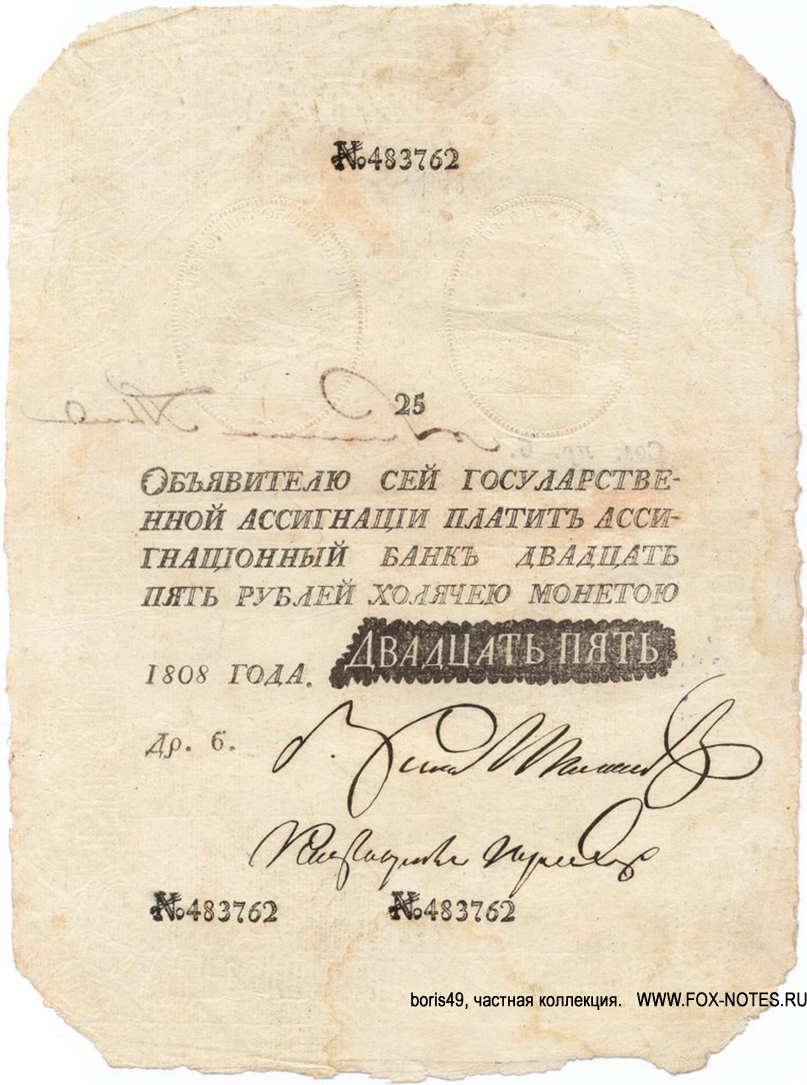 №483762
25
ОБЪЯВИТЕЛЮ СЕЙ ГОСУЛАРСТВЕ-
ННОЙ АССИГНАЦІИ ПЛАТИТЪ АССИ-
ГНАЦІОННЫЙ БАНКЪ ДВАДЦАТЬ
ПЯТЬ РУБЛЕЙ ХОЛЯЧЕЮ МОНЕТОЮ
1808 ГОДА. ДВАДЦАТЬ ПЯТЬ
Др. 6.
№483762 №483762
boris49, частная коллекция. WWW.FOX-NOTES.RU